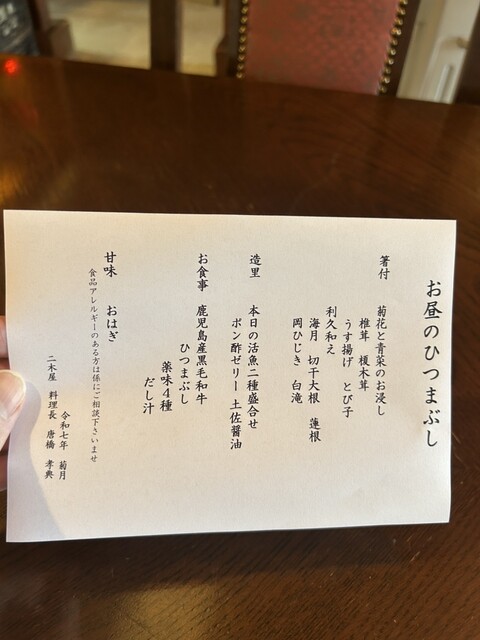 お昼のひつまぶし
箸付　菊花と青菜のお浸し
椎茸　榎木茸
うす揚げ　とび子
利久和え
海月　切干大根　蓮根
岡ひじき　白滝
造里　本日の活魚二種盛合せ
ポン酢ゼリー　土佐醤油
お食事　鹿児島産黒毛和牛
ひつまぶし
薬味４種
だし汁
甘味　おはぎ
食品アレルギーのある方は係にご相談下さいませ
令和七年　菊月
二木屋　料理長　唐橋　孝典